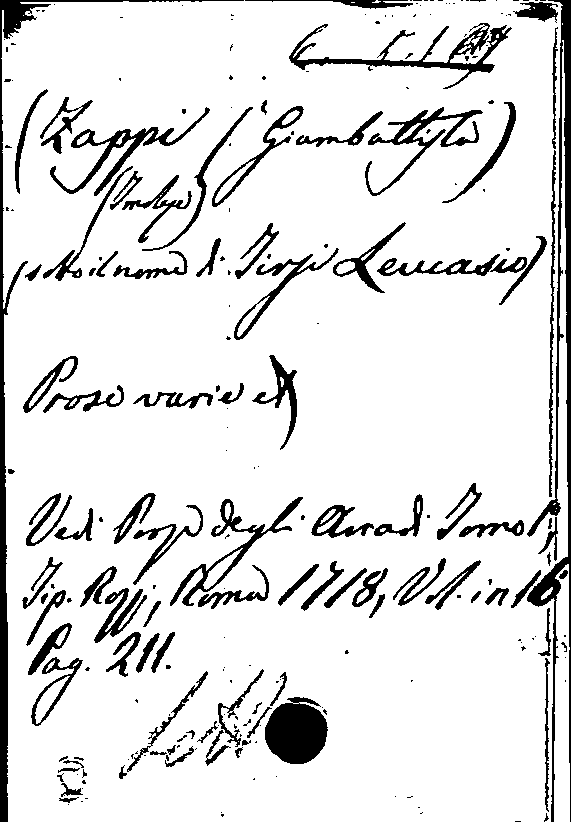 6. 5. 1
(Zappi (Giambattista)
(Imolese)
(sotto il nome di Tirsi Leucasio)
Prose varie
Vedi Prose degli Arcadi Tomo I°,
Tip. Rossi, Roma 1718, Vol. in 16
Pag. 211.
Lett